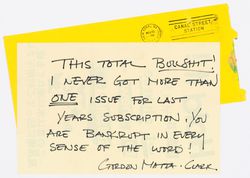 CANAL STREET
STATION
THIS TOTAL BULLSHIT!
I NEVER GOT MORE THAN
ONE ISSUE FOR LAST
YEARS SUBSCRIPTION. YOU
ARE BANKRUPT IN EVERY
SENSE OF THE WORD!
GORDON MATTA-CLARK